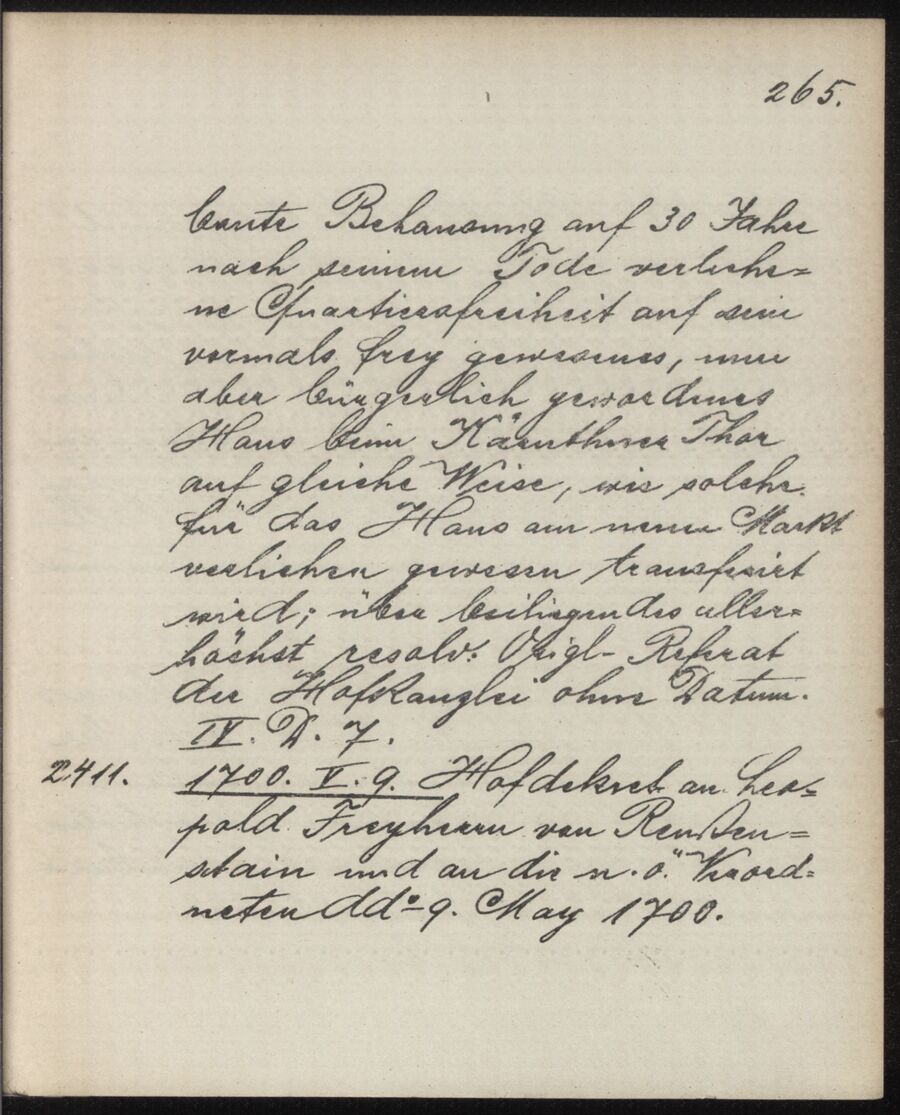 265.
baute Behausung auf 30 Jahre
nach seinem Tode verliehe=
ne Quartiersfreiheit auf sein
vormals frey gewesenes, nun
aber bürgerlich gewordenes
Haus beim Kärnthner Thor
auf gleiche Weise, wie solche
für das Haus am neuen Markt
verliehen gewesen transferirt
wird; über beiliegendes aller=
höchst resolv: Origl-Referat
der Hofkanzlei ohne Datum.
IV. D. 7.
2411. 1700. V. 9. Hofdekret an Leo=
pold Freyherrn von Reußen=
stain und an die n. ö. Verord=
neten ddo 9. May 1700.